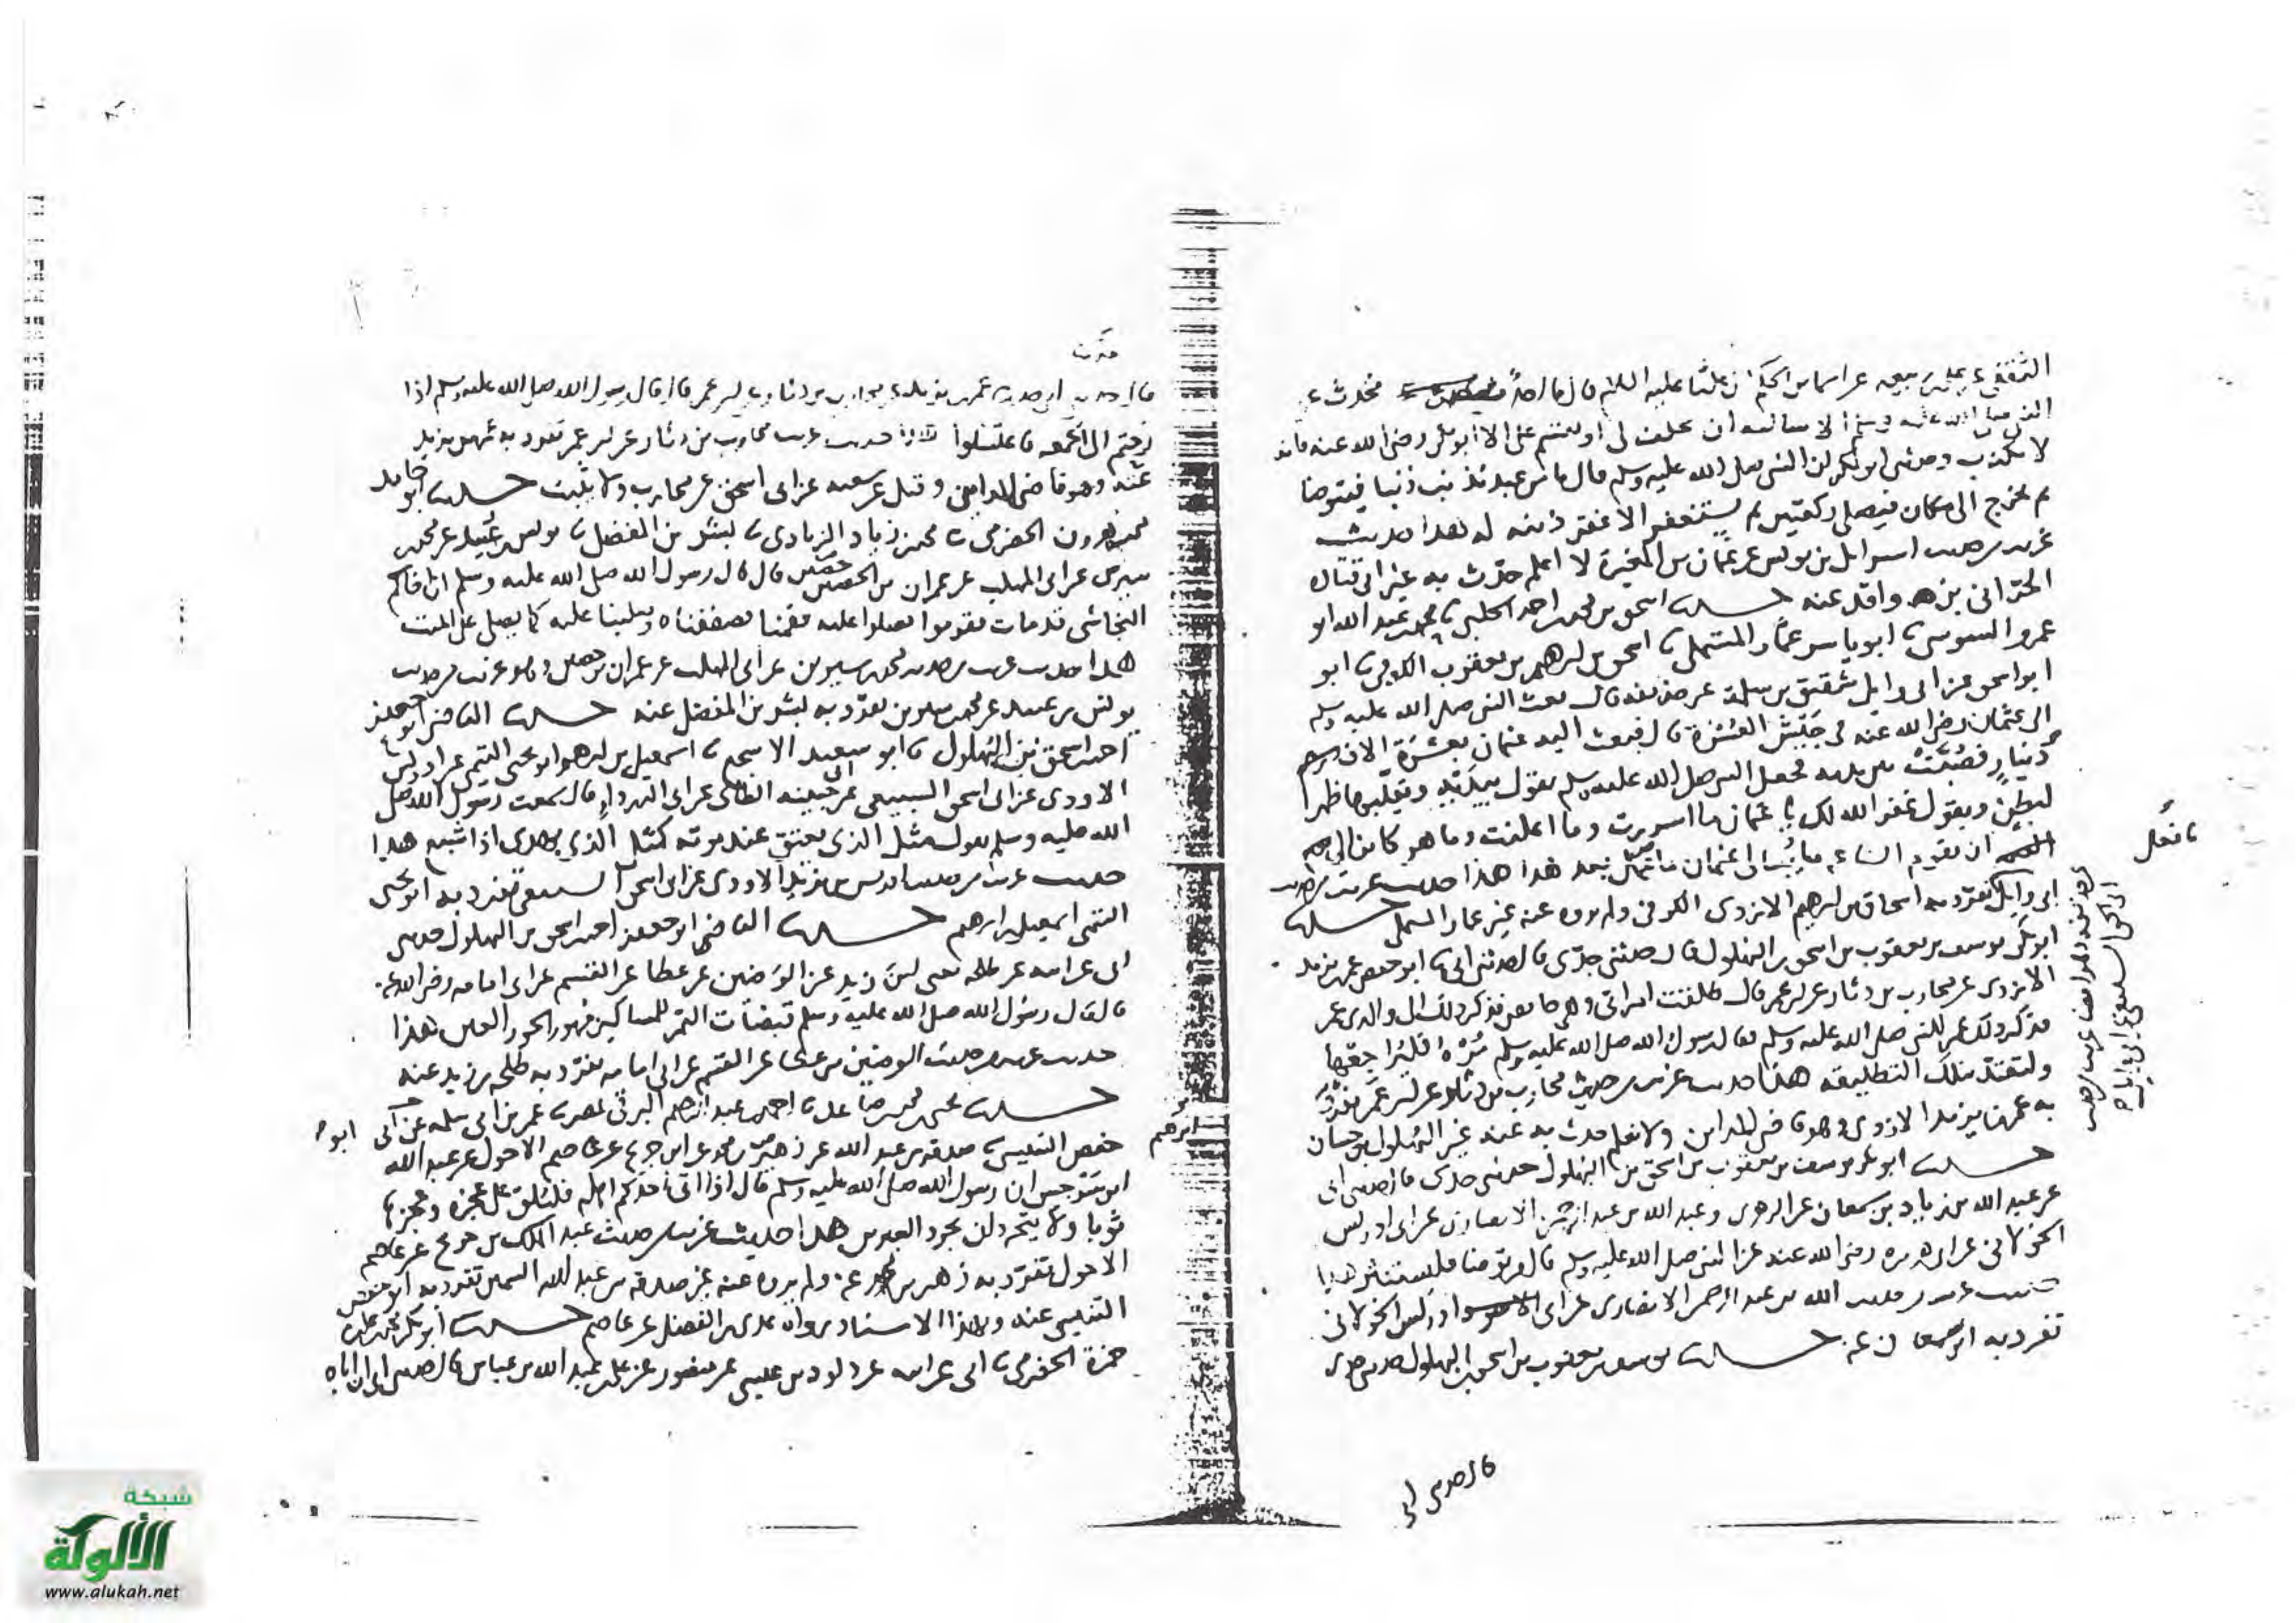 الثقفي عن علي بن ربيعة عن اسما بن الحكم ان عليا عليه السلام قال ما احد فحدث عن
النبي صلى الله عليه وسلم الا سالته ان يحلف لي او يقسم الا ابو بكر رضي الله عنه فانه
لا يكذب وحدثني ابو بكر ان النبي صلى الله عليه وسلم قال ما من عبد يذنب ذنبا فيتوضا
ثم يخرج الى مكان فيصلي ركعتين ثم يستغفر الا غفر ذنبه له هذا حديث
غريب من حديث اسرايل بن يونس عن عثمان بن المغيرة لا اعلم حدث به غير ابي قتادة
الحراني بن واقد عنه حدثنا اسحق بن محمد بن احمد الحلبي نا محمد بن عبد الله ابو
عمرو السوسي نا ابو ياسر عمار المستملي نا اسحق بن ابرهيم بن يعقوب الكوفي نا ابو
ابو اسحق عن ابي وايل شقيق بن سلمة عن حذيفة قال بعث النبي صلى الله عليه وسلم
الى عثمان رضي الله عنه في جيش العسرة قال فبعث اليه عثمان بعشرة الاف
دينار فصبت بين يديه فجعل النبي صلى الله عليه وسلم يقول بيديه ويقلبها ظهرا
لبطن ويقول غفر الله لك يا عثمان ما اسررت وما اعلنت وما هو كاين الى
ان تقوم الساعة ما يبالي عثمان ما عمل بعد هذا هذا حديث غريب من حديث
ابي وايل تفرد به اسحاق بن ابرهيم الازدي الكوفي ولم يروه عنه غير عمار المستملي حدثنا
ابو بكر يوسف بن يعقوب بن اسحق بن البهلول قال حدثني جدي قال حدثني ابي نا ابو حفص عمر بن يزيد
الازدي عن محارب بن دثار عن ابن عمر قال طلقت امراتي وهي حايض فذكر ذلك والدي عمر
فذكر ذلك عمر للنبي صلى الله عليه وسلم فقال رسول الله صلى الله عليه وسلم مره فليراجعها
ولتعتد بتلك التطليقة هذا حديث غريب من حديث محارب بن دثار عن ابن عمر تفرد
به عمر بن يزيد الازدي وهو قاضي المداين ولا نعلم حدث به عنه غير البهلول بن حسان
حدثنا ابو بكر يوسف بن يعقوب بن اسحق بن البهلول حدثني جدي قال حدثني ابي
عن عبد الله بن زياد بن سمعان عن الزهري وعبد الله بن عبد الرحمن الانصاري عن ابي ادريس
الخولاني عن ابي هريرة رضي الله عنه عن النبي صلى الله عليه وسلم قال من توضا فليستنثر هذا
حديث غريب من حديث عبد الله بن عبد الرحمن الانصاري عن ابي ادريس الخولاني
تفرد به ابن سمعان عنه حدثنا يوسف بن يعقوب بن اسحق بن البهلول حدثني جدي
قال حدثني ابي
قال حدثني ابي عمر بن يزيد عن محارب بن دثار عن ابن عمر قال قال رسول الله صلى الله عليه وسلم اذا
رحتم الى الجمعة فاغتسلوا هذا حديث غريب من حديث محارب بن دثار عن ابن عمر تفرد به عمر بن يزيد
عنه وهو قاضي المداين وقيل عن شعبة عن ابي اسحق عن محارب ولا يثبت حدثنا ابو حامد
محمد بن هرون الحضرمي نا محمد بن زياد الزيادي نا بشر بن المفضل نا يونس بن عبيد عن محمد
بن سيرين عن ابي المهلب عن عمران بن حصين قال قال رسول الله صلى الله عليه وسلم ان اخاكم
النجاشي قد مات فقوموا فصلوا عليه فقمنا فصففناه وصلينا عليه كما يصلى على الميت
هذا حديث غريب من حديث محمد بن سيرين عن ابي المهلب عن عمران بن حصين وهو غريب من حديث
يونس بن عبيد عن محمد بن سيرين تفرد به بشر بن المفضل عنه حدثنا القاضي ابو جعفر
احمد بن اسحق بن البهلول نا ابو سعيد الاشج نا اسمعيل بن ابرهيم ابو يحيى التيمي عن ادريس
الاودي عن ابي اسحق السبيعي عن ابي حبيبة الطائي عن ابي الدرداء قال سمعت رسول الله صلى
الله عليه وسلم يقول مثل الذي يعتق عند موته كمثل الذي يهدي اذا شبع هذا
حديث غريب من حديث ادريس بن يزيد الاودي عن ابي اسحق السبيعي تفرد به ابو يحيى
التيمي اسمعيل بن ابرهيم حدثنا القاضي ابو جعفر احمد بن اسحق بن البهلول حدثني
ابي عن ابيه عن طلحة يعني ابن زيد عن الوضين عن عطا عن القسم عن ابي امامة رضي الله عنه
قال قال رسول الله صلى الله عليه وسلم قبضات التمر للمساكين مهور الحور العين هذا
حديث غريب من حديث الوضين بن عطا عن القسم عن ابي امامة تفرد به طلحة بن زيد عنه
حدثنا يحيى بن محمد بن صاعد نا احمد بن عبد الرحيم البرقي بمصر نا عمرو بن ابي سلمة
حفص التنيسي نا صدقة بن عبد الله عن زهير بن محمد عن ابن جريج عن عاصم الاحول عن عبد الله
ابن سرجس ان رسول الله صلى الله عليه وسلم قال اذا اتى احدكم اهله فليلق على عجزه وعجزها
ثوبا ولا يتجردان تجرد العيرين هذا حديث غريب من حديث عبد الملك بن جريج عن عاصم
الاحول تفرد به زهير بن محمد عنه ولم يروه عنه غير صدقة بن عبد الله السمين تفرد به ابو حفص
التنيسي عنه وبهذا الاسناد رواه عدي بن الفضل عن عاصم حدثنا ابو بكر محمد بن
حمزة الحضرمي نا ابي عن ابيه عن داود بن عيسى عن منصور عن علي بن عبد الله بن عباس قال حدثني ابي ان اباه
شبكة
الألوكة
www.alukah.net